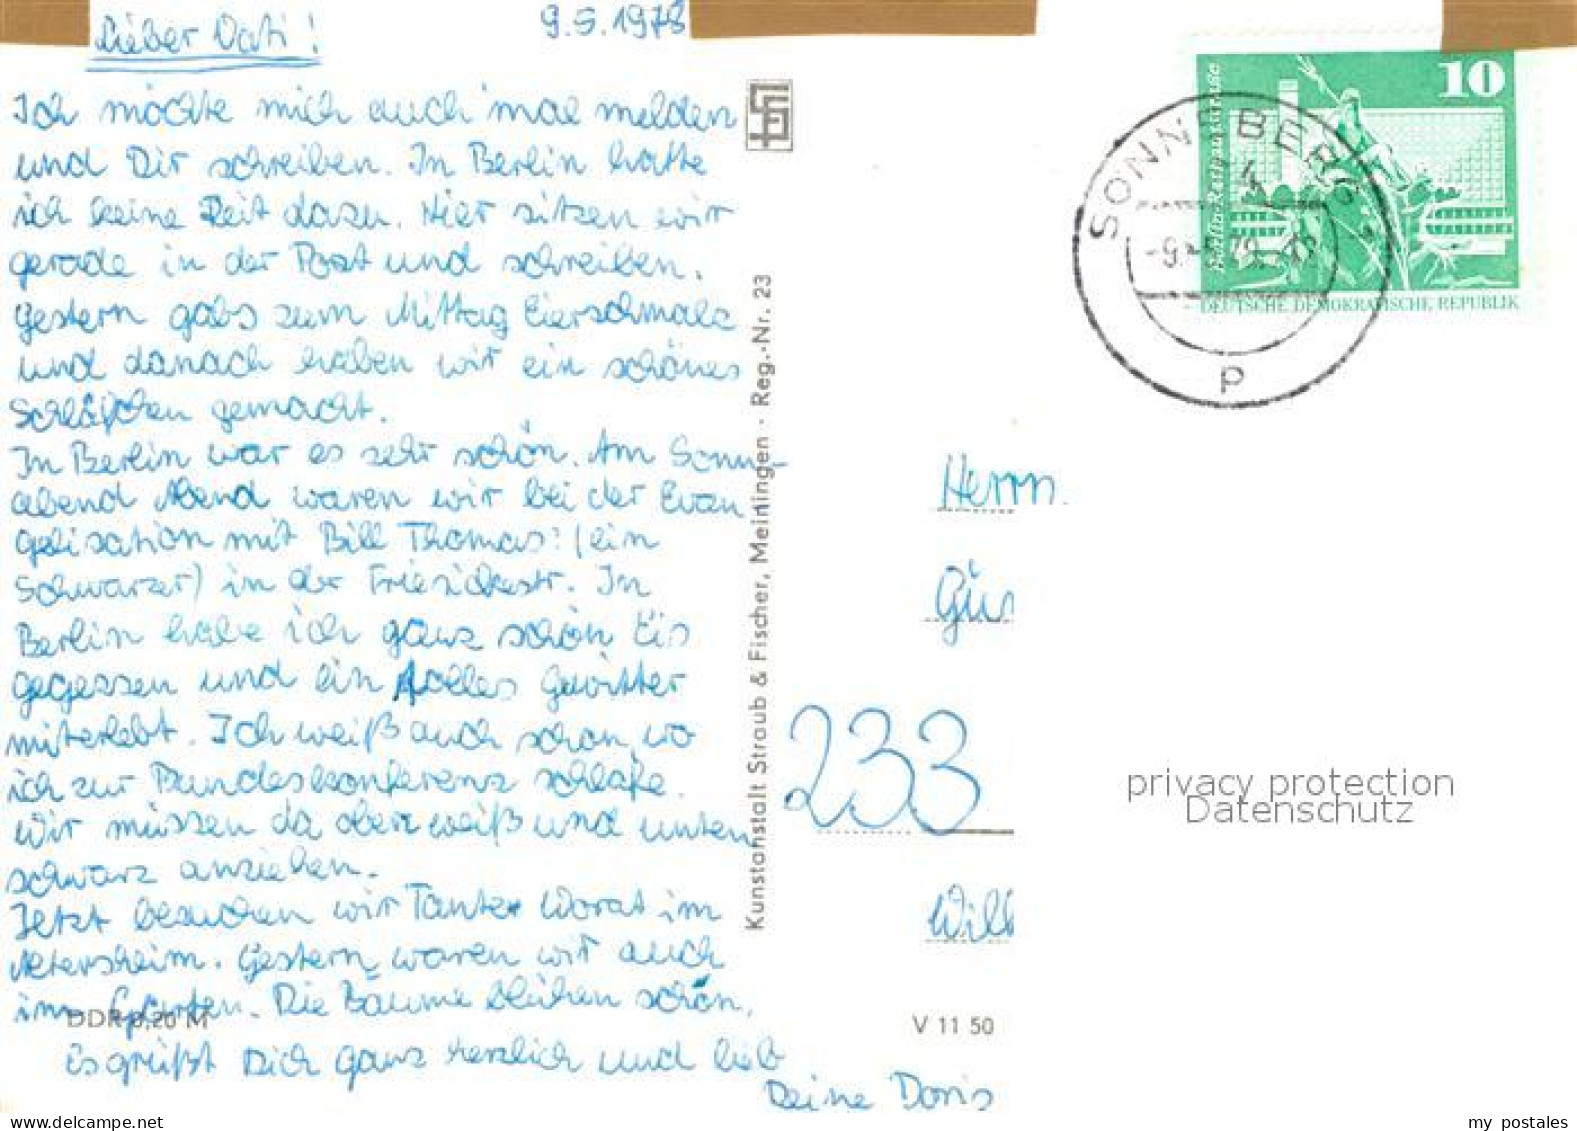 9.5.1978
Lieber Vati!
Ich möchte mich auch mal melden
und Dir schreiben. In Berlin hatte
ich keine Zeit dazu. Hier sitzen wir
gerade in der Post und schreiben.
Gestern gabs zum Mittag Eierschmalz
und danach haben wir ein schönes
Schläfchen gemacht.
In Berlin war es sehr schön. Am Sonn-
abend Abend waren wir bei der Evan
gelisation mit Bill Thomas: (ein
Schwarzer) in der
In
Berlin habe ich ganz schön Eis
gegessen und ein tolles Gewitter
miterlebt. Ich weiß auch schon, wo
ich zur Bundeskonferenz schlafe.
Wir müssen da oben weiß und unten
schwarz anziehen.
Jetzt besuchen wir Tante im
Altersheim. Gestern waren wir auch
im Garten. Die Bäume blühen schön.
Es grüßt Dich ganz herzlich und lieb
Deine Doris
DDR 0,20 M
V 11 50
Kunstanstalt Straub & Fischer, Meiningen · Reg.-Nr. 23
10
DEUTSCHE DEMOKRATISCHE REPUBLIK
SONNEBERG
P
Herrn
Gus
233
Will
privacy protection
Datenschutz
my postales